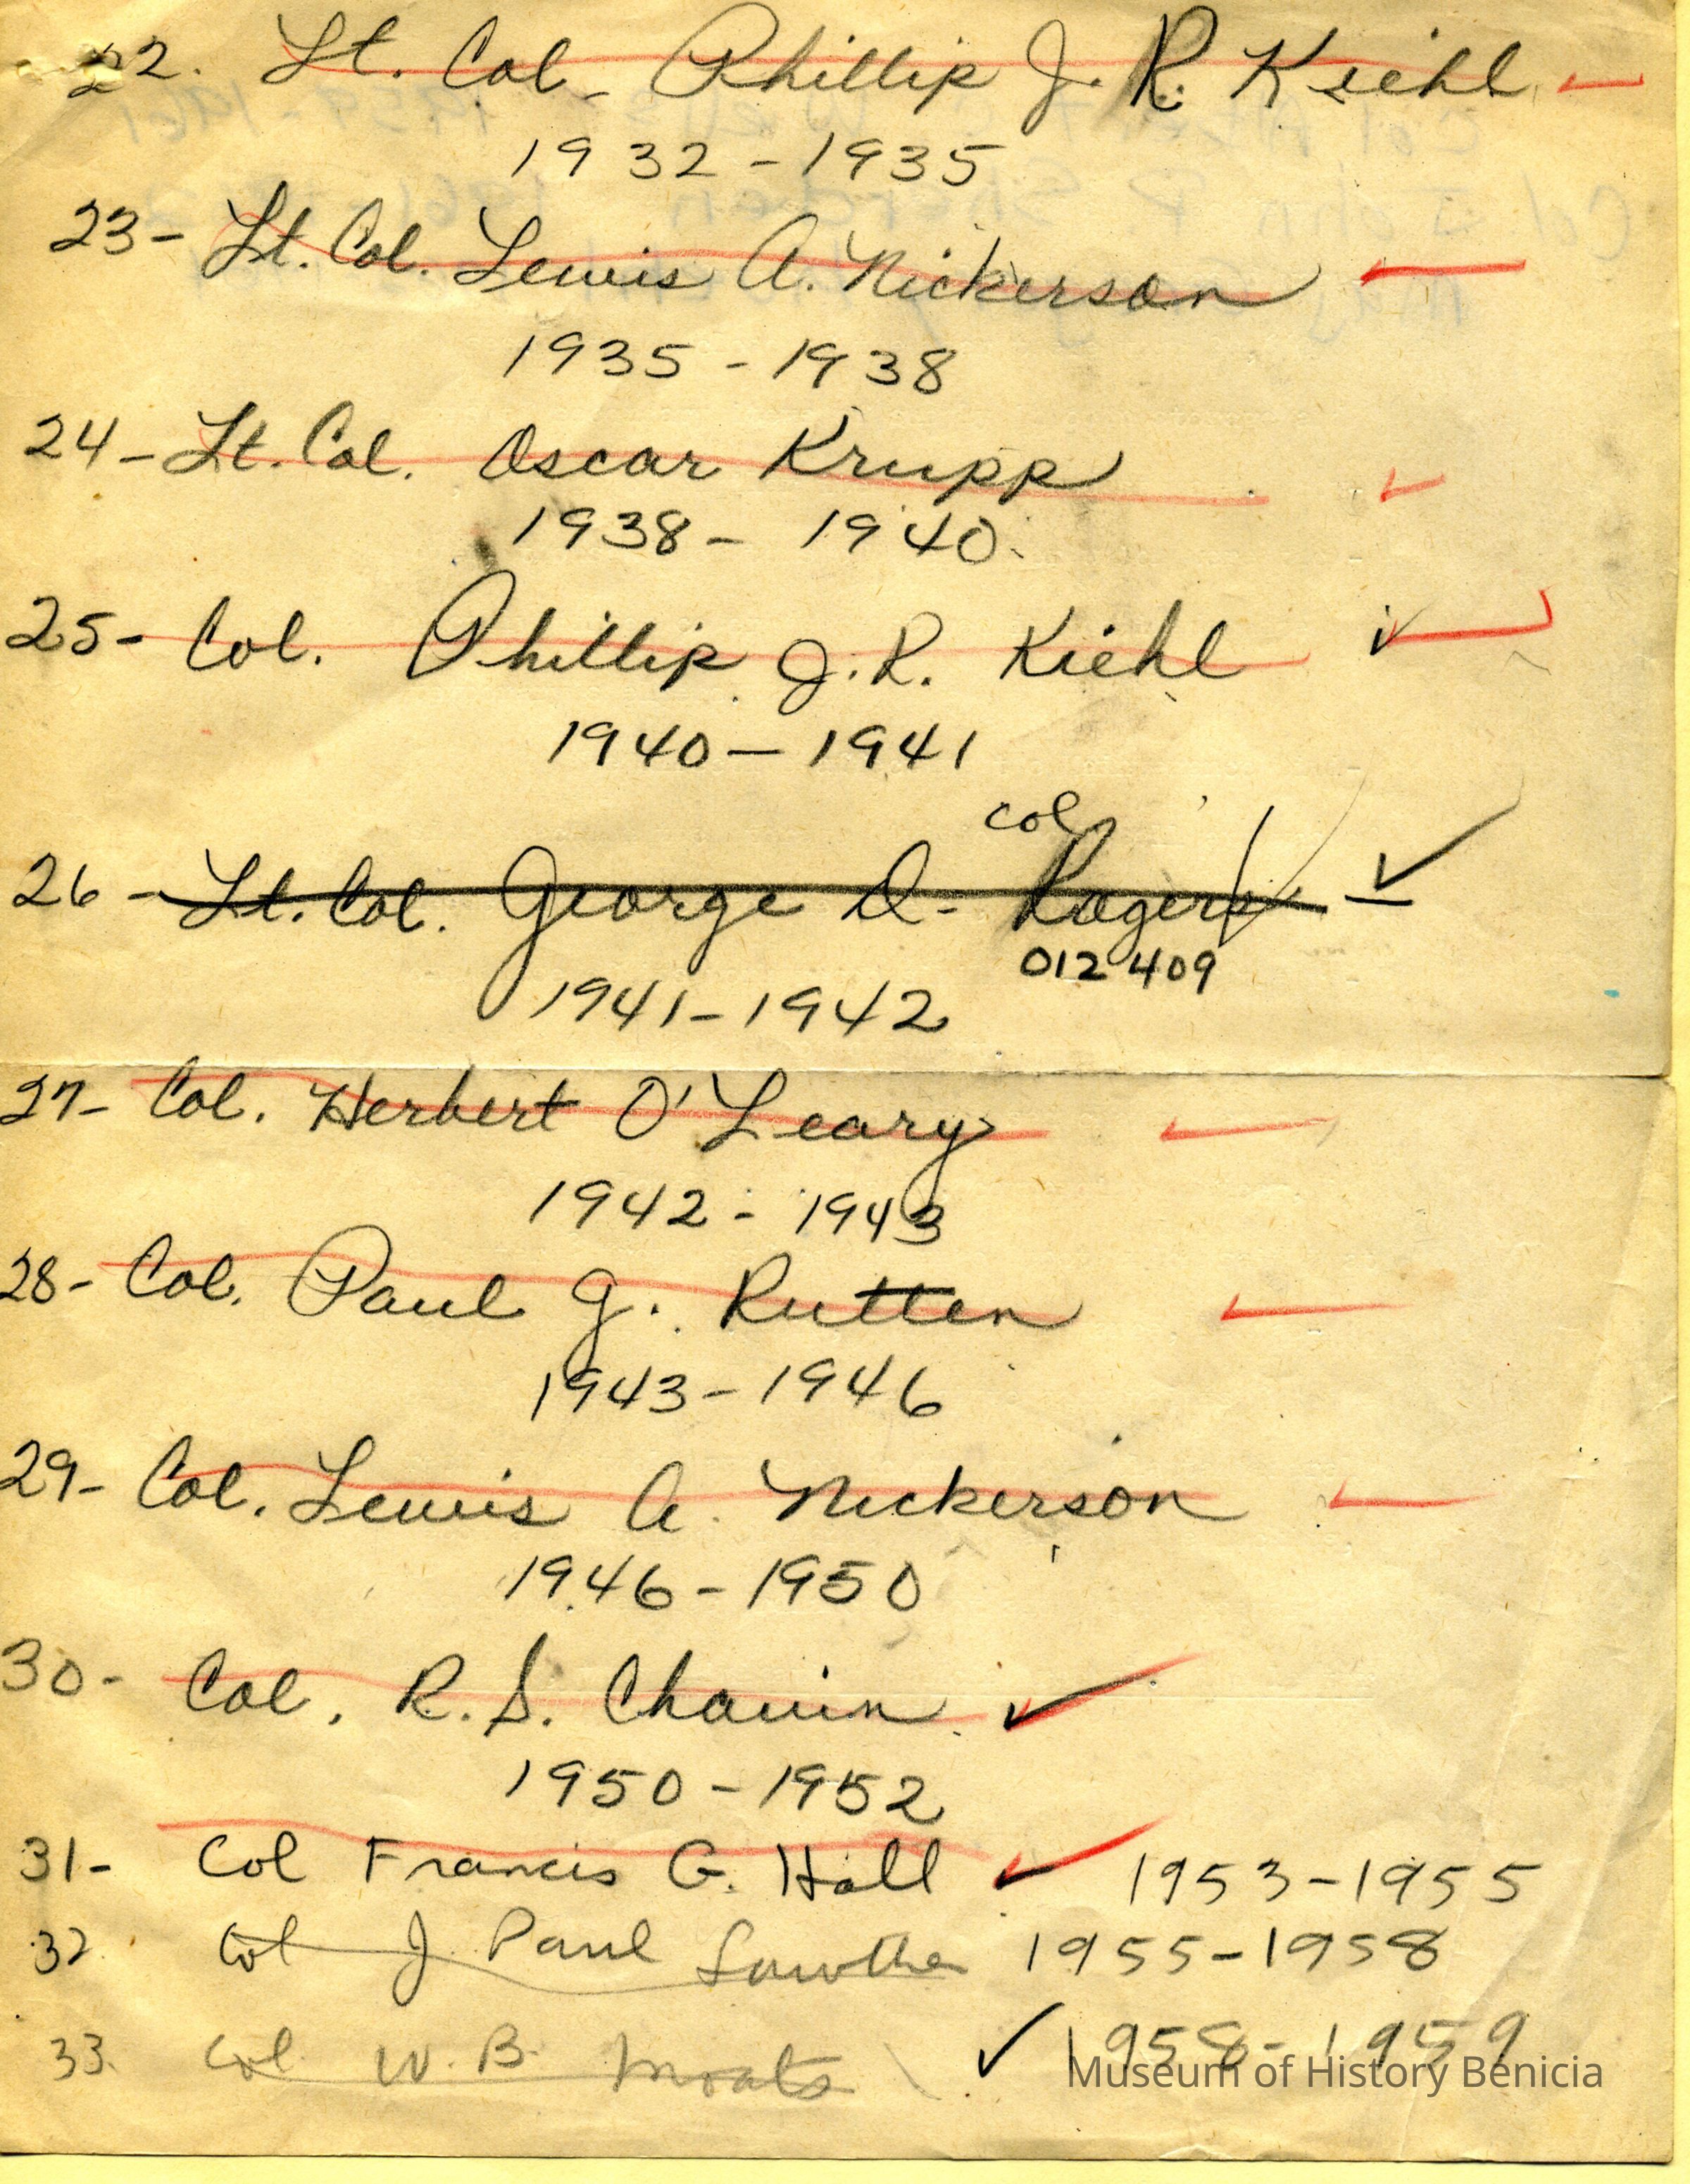 22. Lt. Col. Phillip J. R. Kiehl
1932 - 1935
23- Lt. Col. Lewis A. Nickerson
1935 - 1938
24- Lt. Col. Oscar Krupp
1938 - 1940
25- Col. Phillip J. R. Kiehl
1940 - 1941
Col
26- Lt. Col. George D. Rogers
012409
1941 - 1942
27- Col. Herbert O'Leary
1942 - 1943
28- Col. Paul G. Rutten
1943 - 1946
29- Col. Lewis A. Nickerson
1946 - 1950
30- Col. R. S. Chavin
1950 - 1952
31- Col Francis G. Hall 1953-1955
32. Col J. Paul 1955-1958
33. Col W. B. Moats 1958-1959
Museum of History Benicia